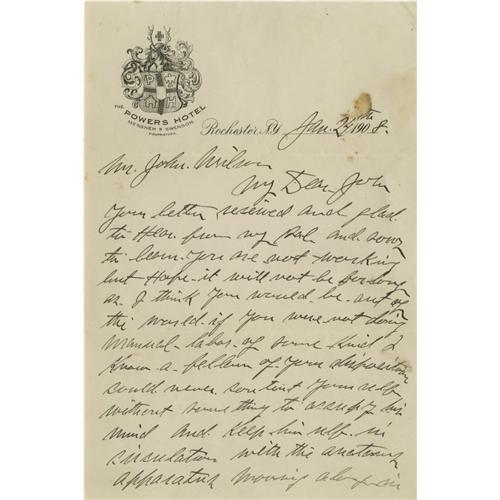 THE
POWERS HOTEL
MESSNER & SWENSON
PROPRIETORS.
Rochester, N.Y. Jan. 24th 1908.
Mr. John Wilson
My Dear John
Your letter received and glad
to Hear from my Pal and sorry
to learn you are not working
but Hope it will not be for long
as I think you would be out of
the world if you were not doing
manual labor of some kind I
Know a fellow of your disposition
could never content your self
without something to occupy his
mind and Keep him self in
circulation with the anatomy
apparatus moving along in